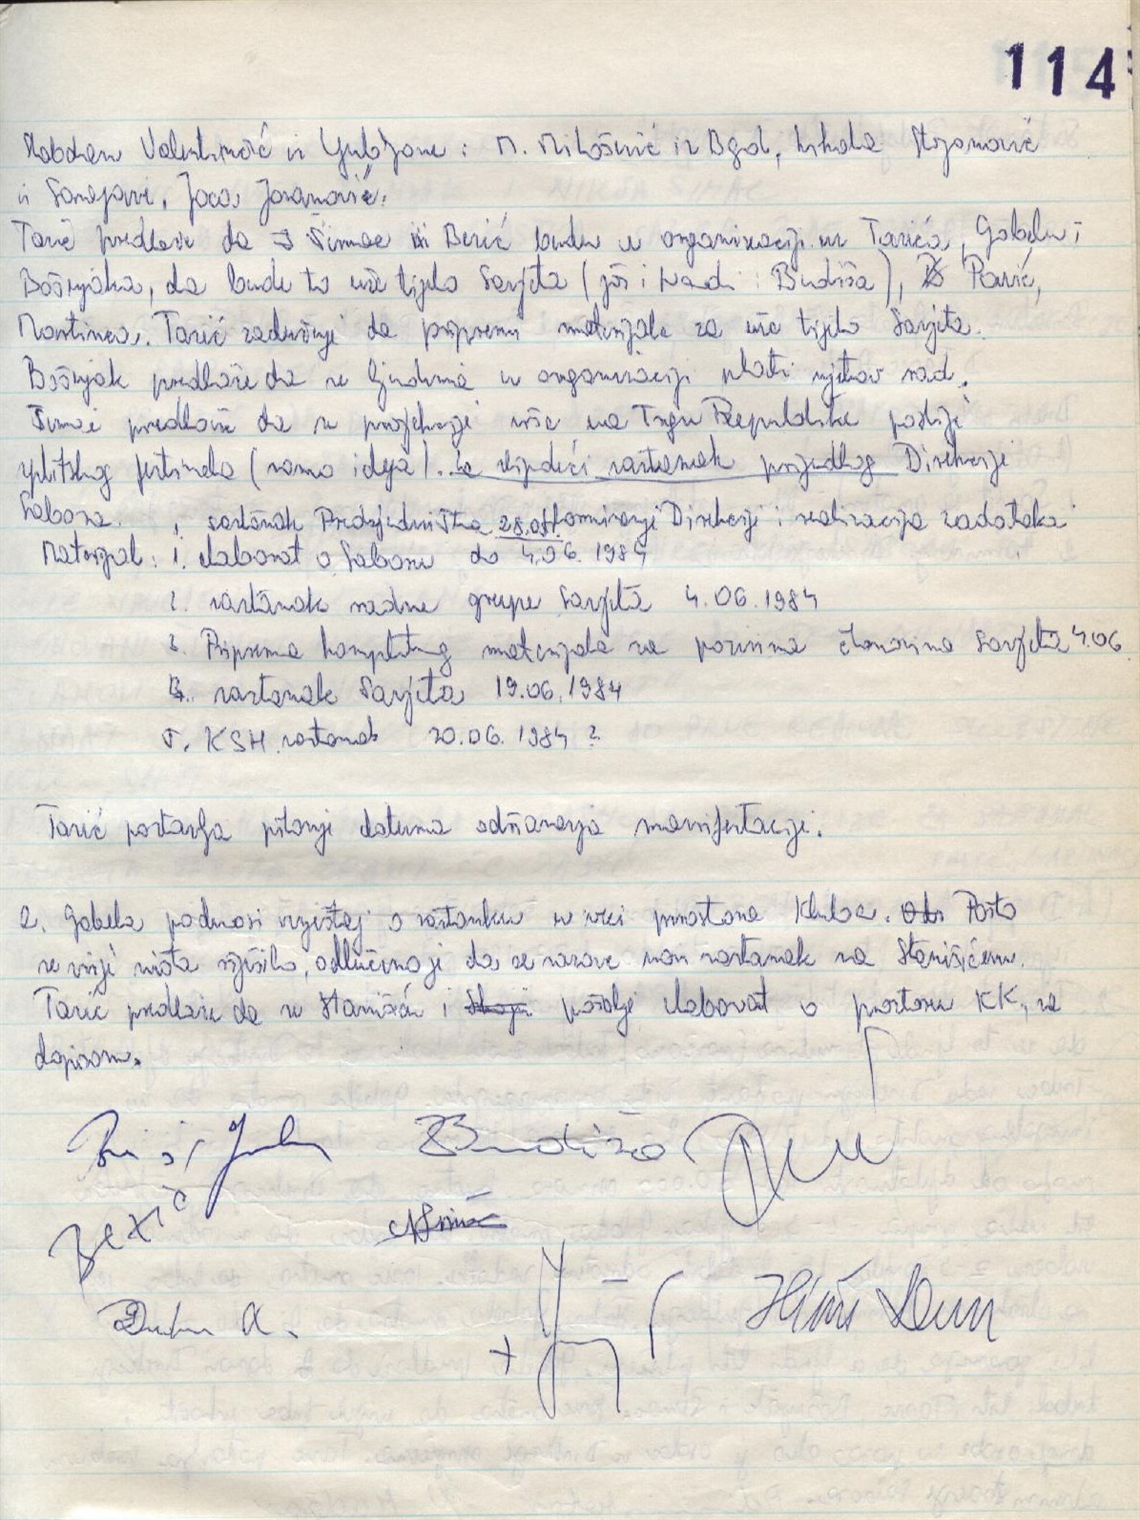 114
Slobodan Valentinčić iz Ljubljane i M. Milošević iz Bgd,
iz Sarajeva, Joca Jovanović.
Tarić predlaže da Šimac i Berić budu u organizaciji uz Tarića, Gabelu i
Bošnjaka, da bude to uže tijelo Savjeta (još i Budiša), Pavić,
Martinca. Tarić zadužuje da pripremi materijale za uže tijelo Savjeta.
Bošnjak predlaže da se ljudima u organizaciji plati njihov rad.
Šimac predlaže da se projekcije vrše na Trgu Republike poslije
splitskog festivala (samo ideja). Za slijedeći sastanak prijedlog Direkcije
Sabora. , sastanak Predsjedništva 28.05. formiranje Direkcije i realizacija zadataka
Materijal: 1. elaborat o Saboru do 4.06.1984
2. sastanak radne grupe Savjeta 4.06.1984
3. Priprema kompletnog materijala sa pozivima članovima Savjeta 4.06
4. sastanak Savjeta 19.06.1984
5. KSH sastanak 20.06.1984 ?
Tarić postavlja pitanje datuma održavanja manifestacije.
2. Gabela podnosi izvještaj o sastanku u vezi prostora Kluba. Pošto
se nije ništa riješilo, odlučeno je da se sazove novi sastanak sa Stanišićem.
Tarić predlaže da se Stanišiću i pošalje elaborat o prostoru KK, sa
dopisom.
Budiša
Berić